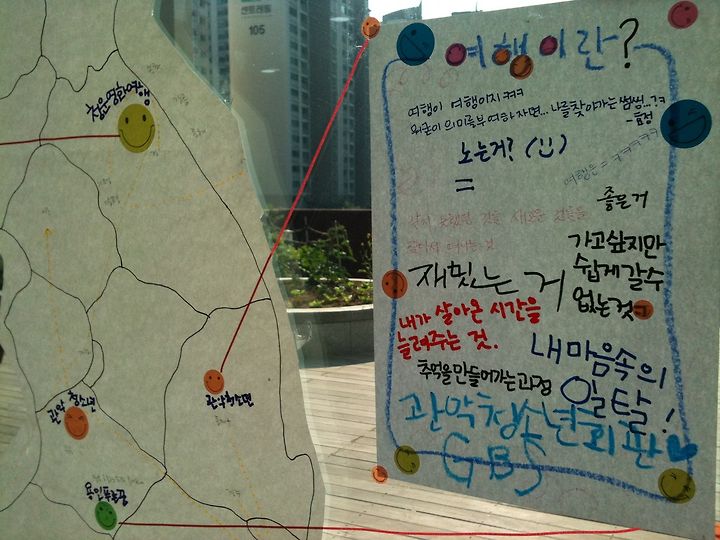 센트레빌
105
청운영화여행
관악 청소년
관악청소년
용인푸른꿈
여행이란?
여행이 여행이지 ㅋㅋㅋ
뭐 의미를 부여하자면... 나를 찾아가는 썸씽...?ㅋ
-효정
노는거? (:))
=
여행은 = ㅋㅋㅋㅋㅋ
좋은거
새로운
재밌는 거
가고싶지만
쉽게 갈 수
없는 것
내가 살아온 시간을
늘려주는 것.
내 마음속의
일탈!
추억을 만들어가는 과정
관악청소년회관
GBS